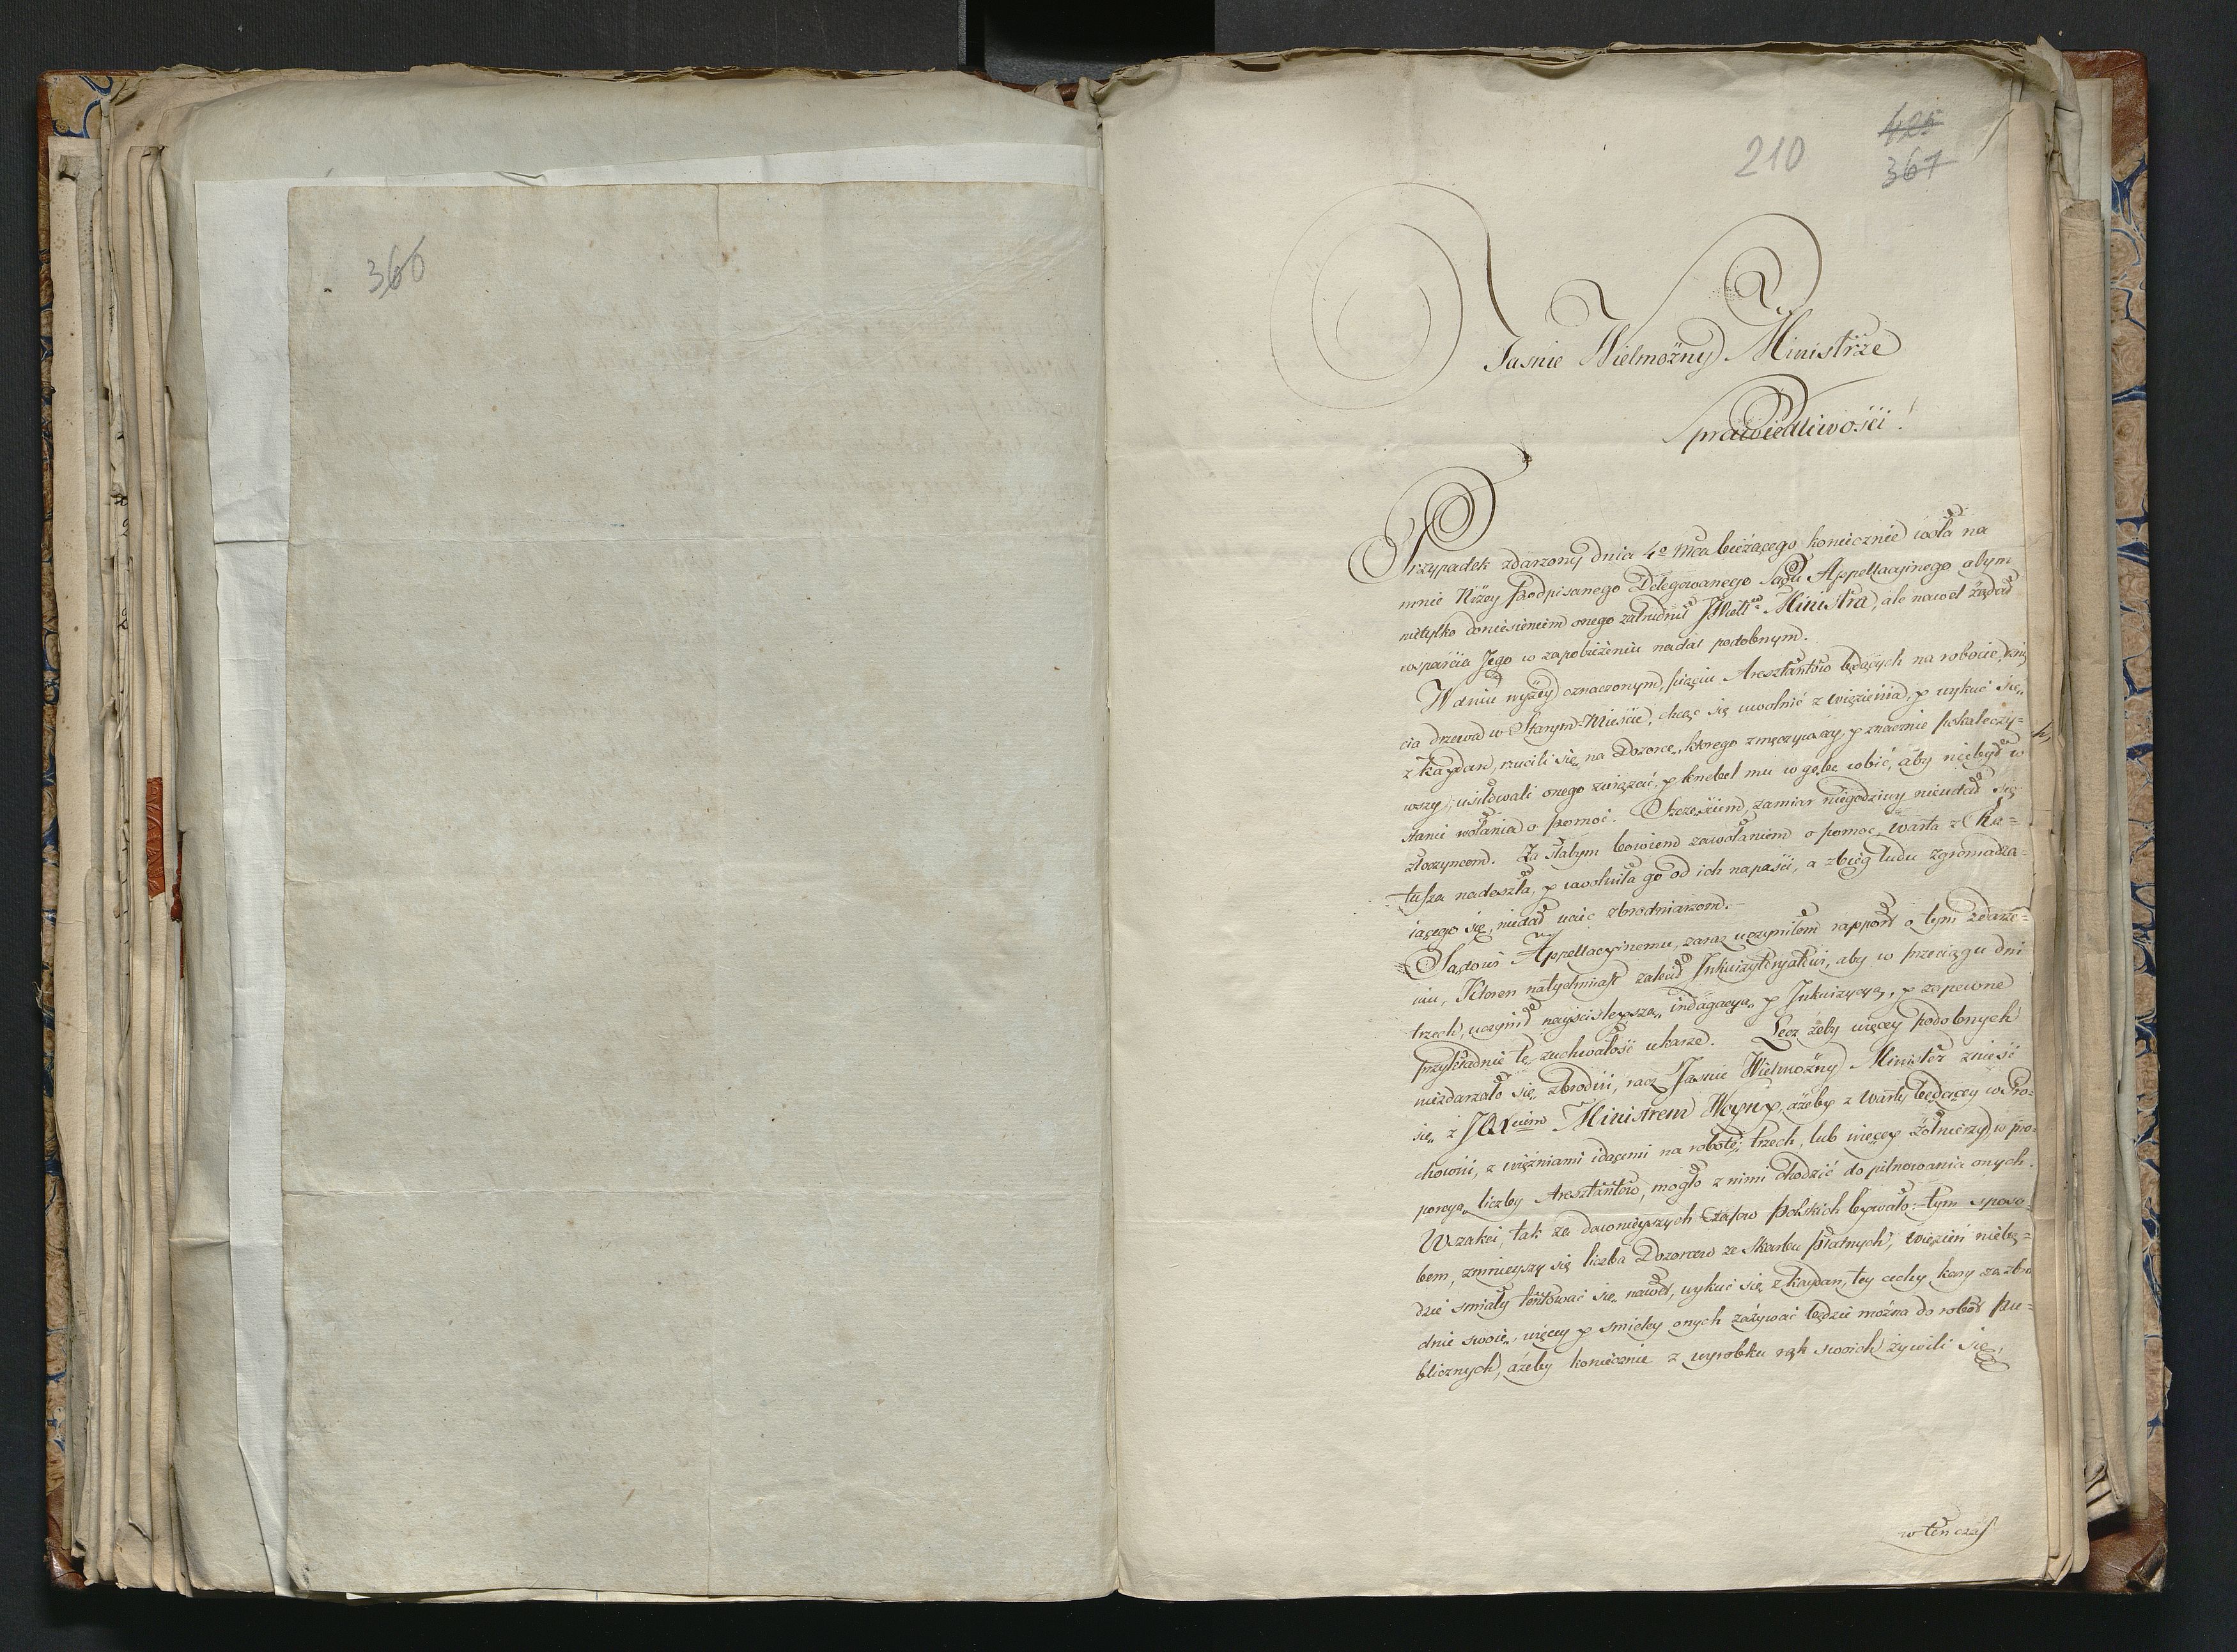 366
210
425
367
Jasnie Wielmożny Ministrze
Sprawiedliwości!
Przypadek zdarzony dnia 4º Mca bieżącego koniecznie woła na
mnie Niżey Podpisanego Delegowanego Sądu Appellacyinego abym
nietylko doniesieniem onego zatrudnił Ministra, ale nawet żądał
wsparcia Jego w zapobieżeniu nadal podobnym.
W dniu wyżey oznaczonym, pięciu Aresztantow będących na robocie, rznię
cia drzewa w Starym-Mieście, chcąc się uwolnić z więzienia, y wykuć się
z Kaydan, rzucili się na Dozorcę, ktorego zmęczywszy, y znacznie pokaleczy=
wszy, usiłowali onego związać, y knebel mu w gębę wbić, aby niebył w
stanie wołania o pomoc. Szczęściem, zamiar niegodziwy nieudał się
złoczyncom. Za słabym bowiem zawołaniem o pomoc, warta z Ra=
tusza nadeszła, y uwolniła go od ich napaści, a zbieg ludu zgromadza=
iącego się, niedał uciec zbrodniarzom.
Sądowi Appellacyinemu, zaraz uczyniłem rapport o tym zdarze=
niu, Ktoren natychmiast zalecił Inkwizytoryatowi, aby w przeciągu dni
trzech, uczynił nayściśleyszą indagacyą y Inkwizycyą, y zapewne
przykładnie tę zuchwałość ukarze. Lecz żeby więcey podobnych
niezdarzało się zbrodni, racz Jasnie Wielmożny Minister znieść
się z Ministrem Woyny, ażeby z warty będącey w Pro=
chowni, z więźniami idącemi na robotę, trzech, lub więcey żołnierzy, w pro=
porcyą liczby Aresztantow, mogło z nimi chodzić do pilnowania onych.
Wszakci, tak za dawnieyszych czasow Polskich bywało: tym sposo=
bem, zmnieyszy się liczba Dozorcow ze Skarbu płatnych, więzień niebę=
dzie smiały tentować się nawet, wykuć się z kaydan, tey cechy kary za zbro
dnie swoie, więcey y smieley onych zażywać będzie można do robot pu=
blicznych, ażeby koniecznie z wyrobku rąk swoich żywili się,
w ten czas